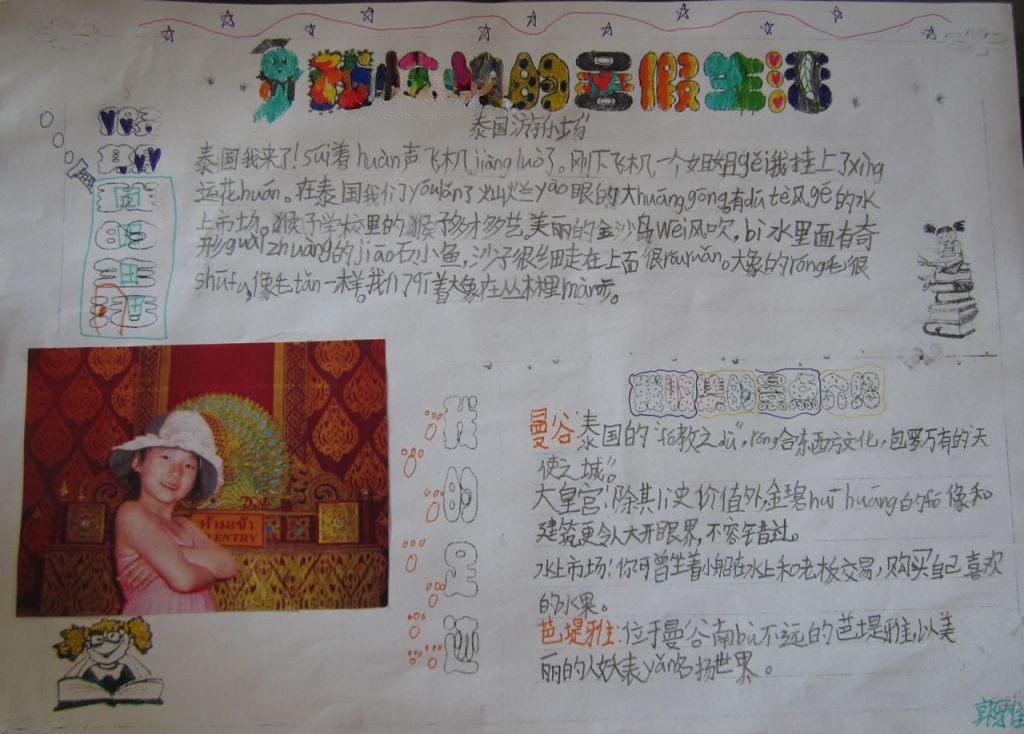 我愉快的暑假生活
泰国游小场
泰国我来了！Suí着huān声飞机jiàng luò了。刚下飞机一个姐姐gěi我挂上了xìng
运花huán。在泰国我们yóulǎn了灿烂yào眼的大huánggōng。有dú tè风gé的水
上市场。猴子学校里的猴子多才多艺。美丽的金沙岛wēi风吹，bì水里面有奇
形guàizhuàng的jiāo石小鱼，沙子很细走在上面很róuruǎn。大象的róng毛很
shūfu，像毛tǎn一样。我们qí着大象在丛林里màn步。
我的足迹
景点介绍
曼谷：泰国的“佛教之dū”，róng合东西方文化，包罗万有的“天
使之城”。
大皇宫：除其历史价值外，金碧huī huáng的fó像和
建筑更令人大开眼界，不容错过。
水上市场：你可曾坐着小船在水上和老板交易，购买自己喜欢
的水果。
芭堤雅：位于曼谷南bù不远的芭堤雅，以美
丽的人妖表yǎn名扬世界。
ห้ามเข้า
NO ENTRY